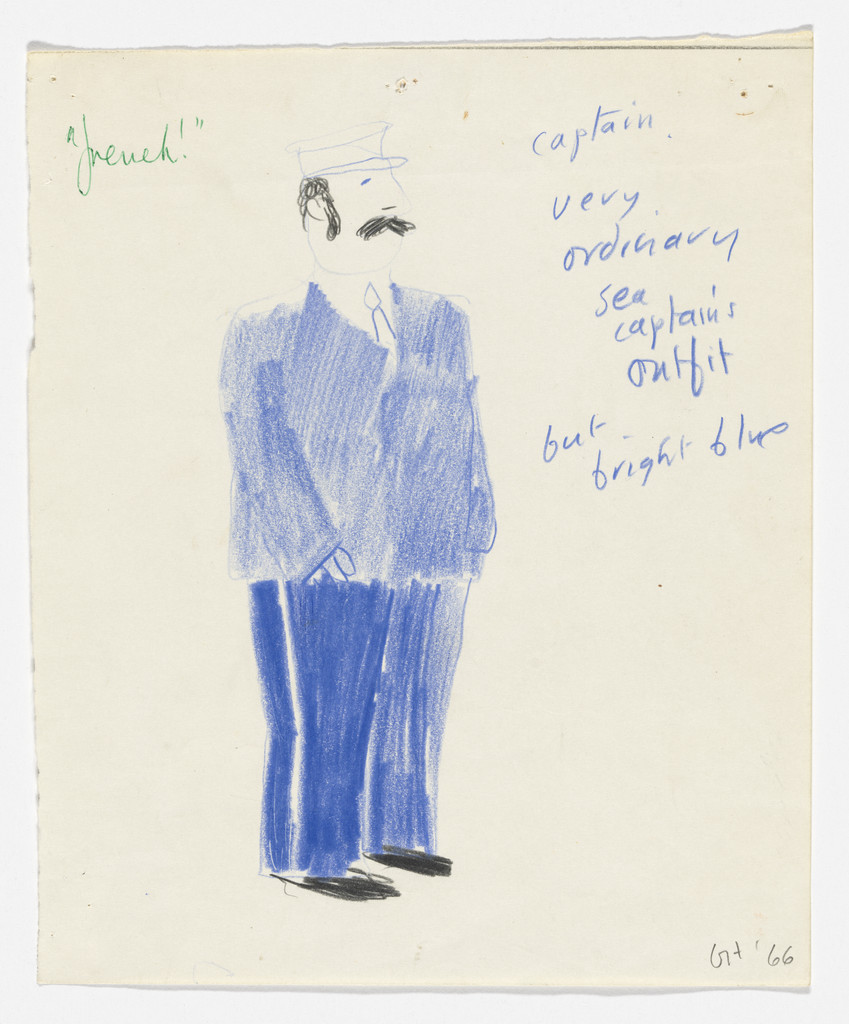 "french!"
captain.
very
ordinary
sea
captain's
outfit
but
bright blue
'66